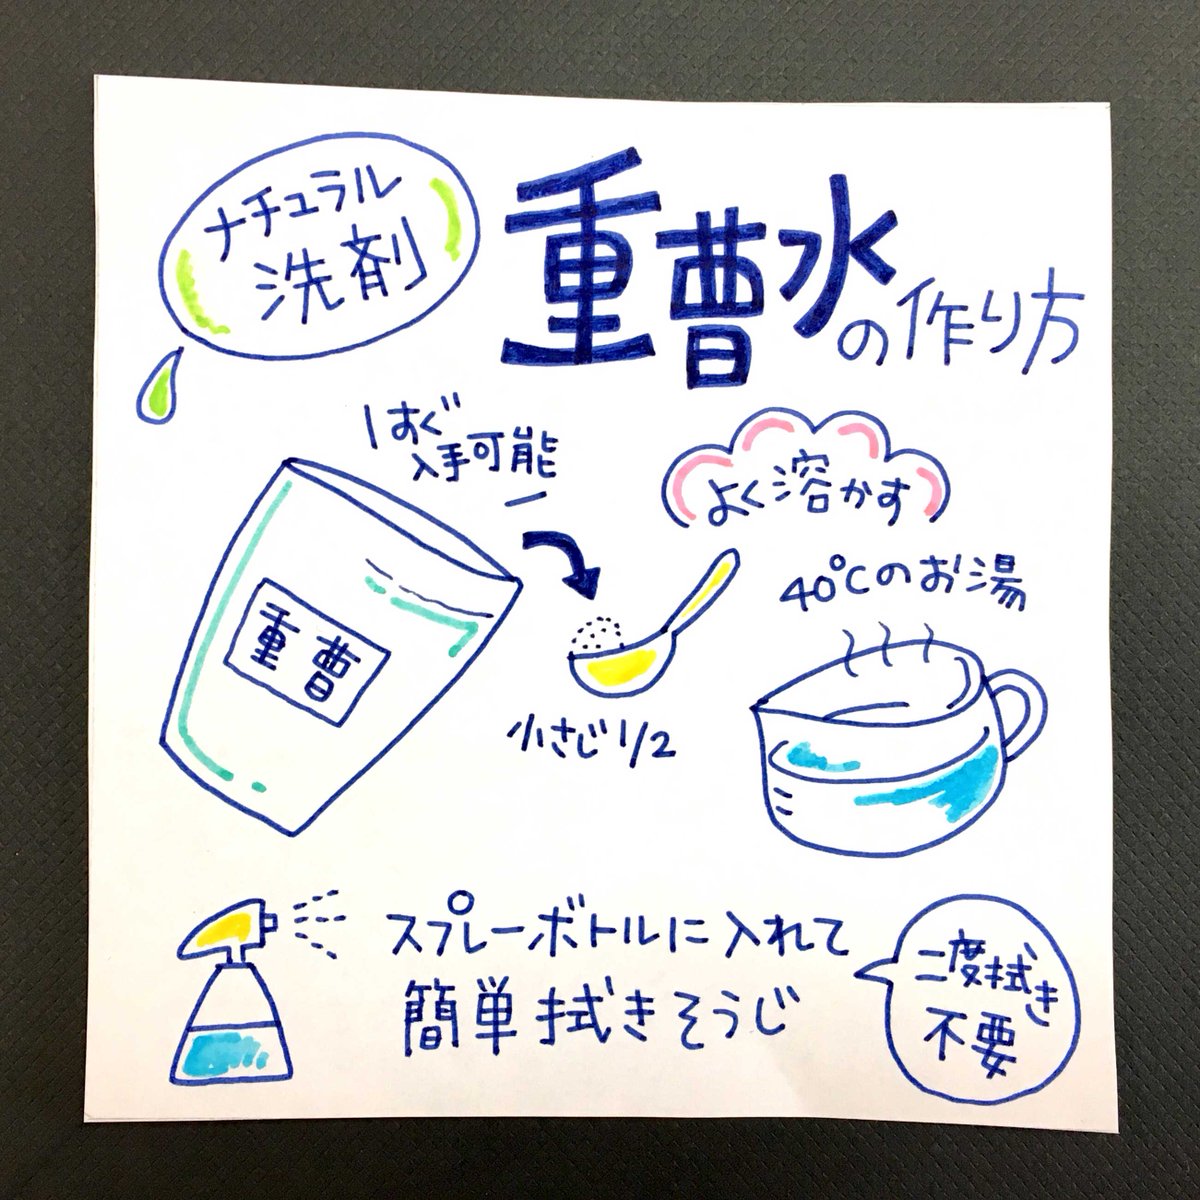 ナチュラル
洗剤
重曹水の作り方
すぐ
入手可能
よく溶かす
40℃のお湯
重曹
小さじ1/2
スプレーボトルに入れて
簡単拭きそうじ
二度拭き
不要